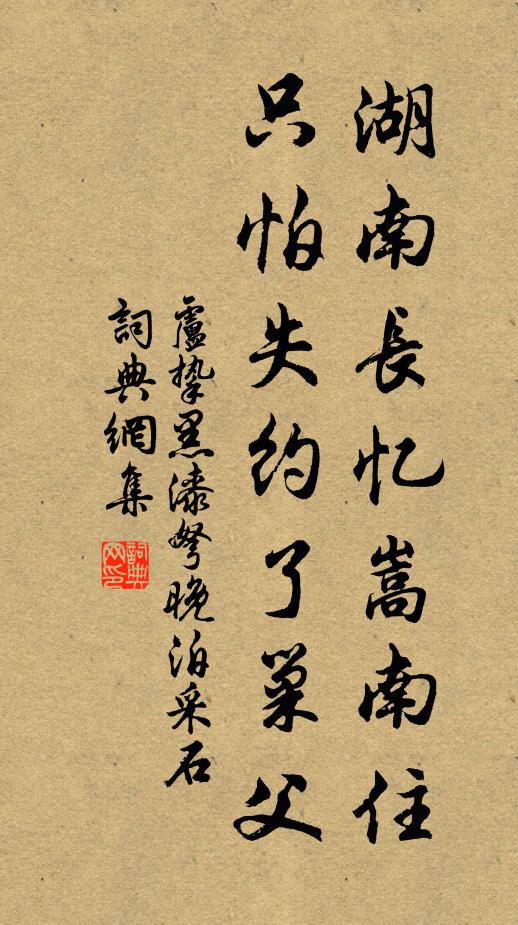 湖南長忆嵩南住
只怕失约了巢父
盧摯黑漆弩晚泊采石
詞典網集
詞典网印